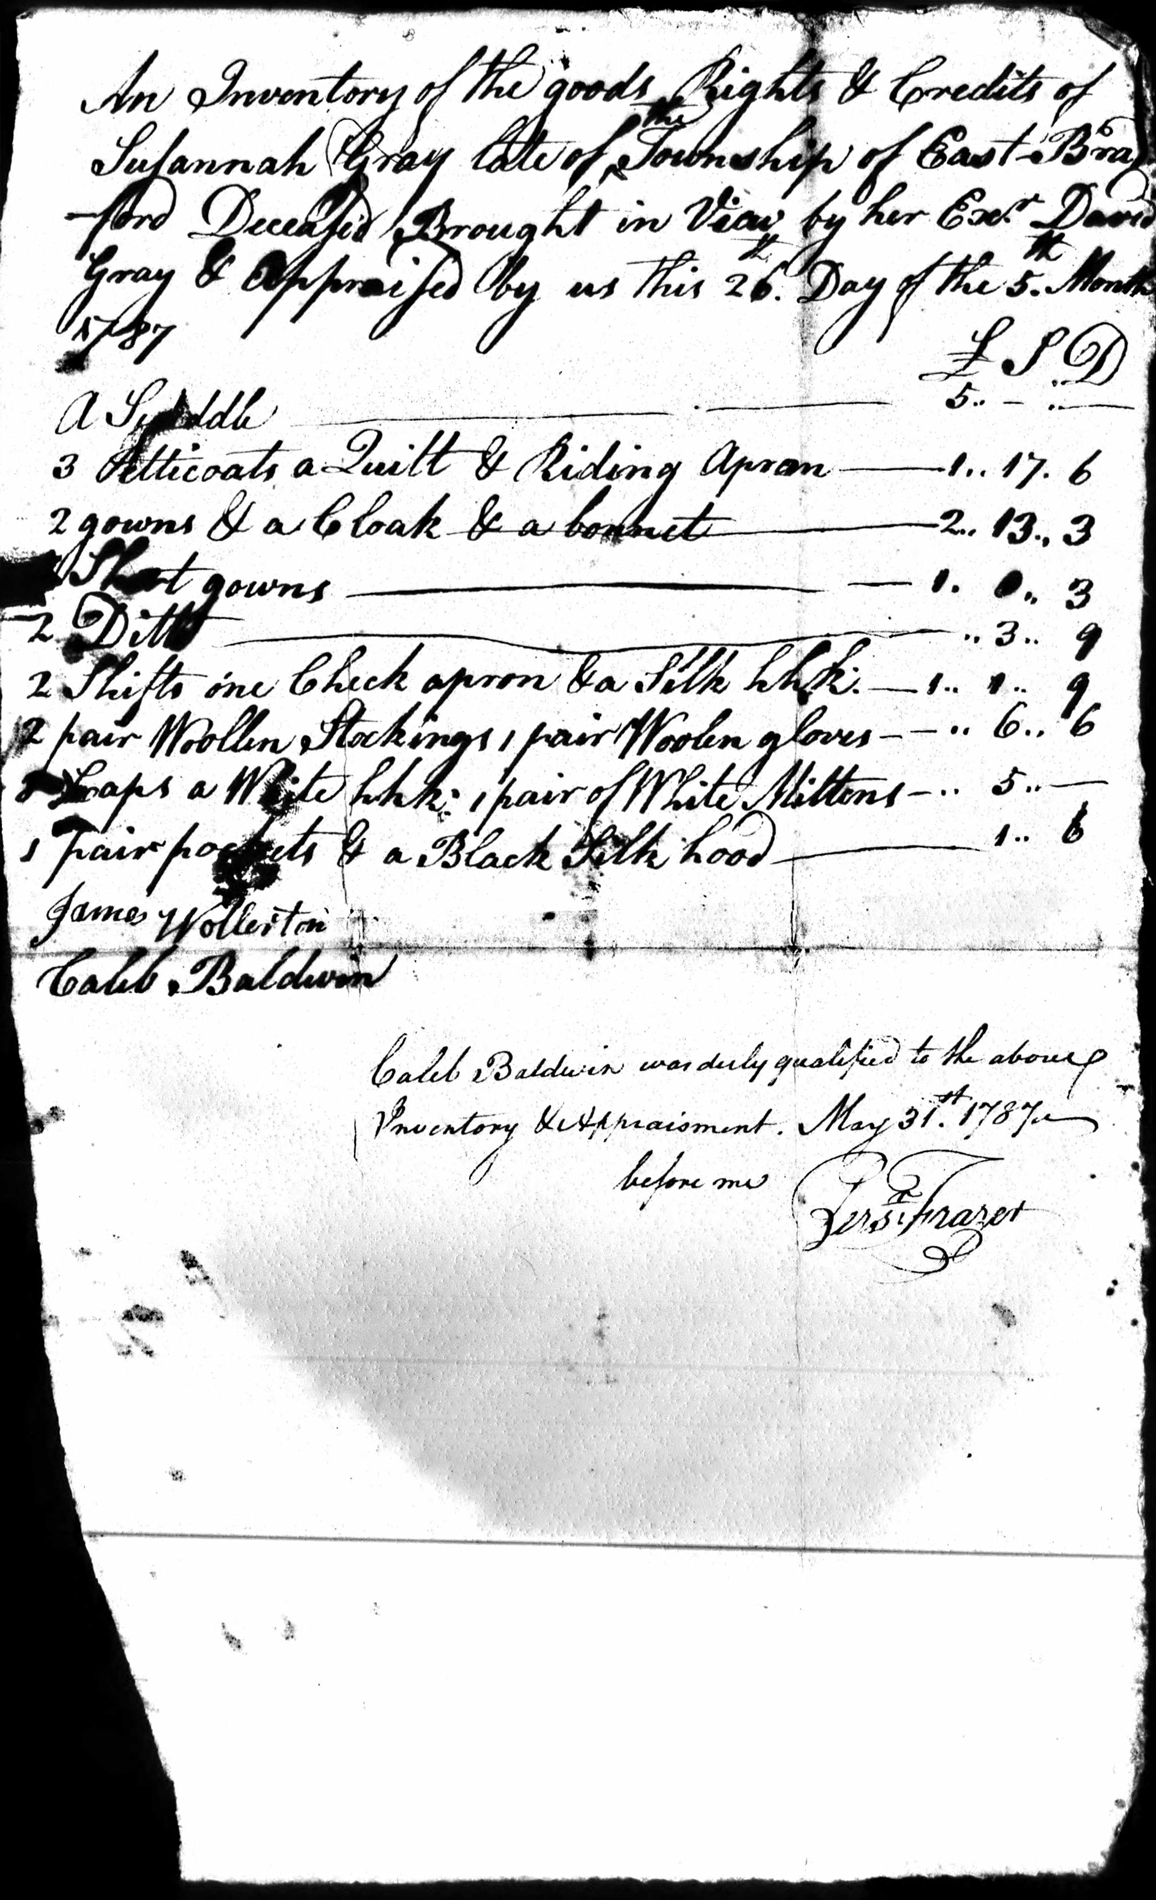 An Inventory of the goods Rights & Credits of
Susannah Gray late of the Township of East-Brad
-ford Deceased Brought in View by her Exr. David
Gray & Appraised by us this 26th. Day of the 5th. Month
1787
£ S D
A Saddle 5.. - ..
3 Petticoats a Quilt & Riding Apron 1.. 17. 6
2 gowns & a Cloak & a bonnet 2.. 13.. 3
Short gowns 1. 0.. 3
2 Ditto .. 3.. 9
2 Shifts one Check apron & a Silk hhk. 1.. 1.. 9
2 pair Woollen Stockings 1 pair Woolen gloves - .. 6.. 6
Caps a White hhk. 1 pair of White Mittens - .. 5.. -
1 pair pockets & a Black Silk hood 1.. 6
James Wollerton
Caleb Baldwin
Caleb Baldwin was duly qualified to the above
Inventory & Appraisment. May 31st. 1787
before me Persr. Frazer